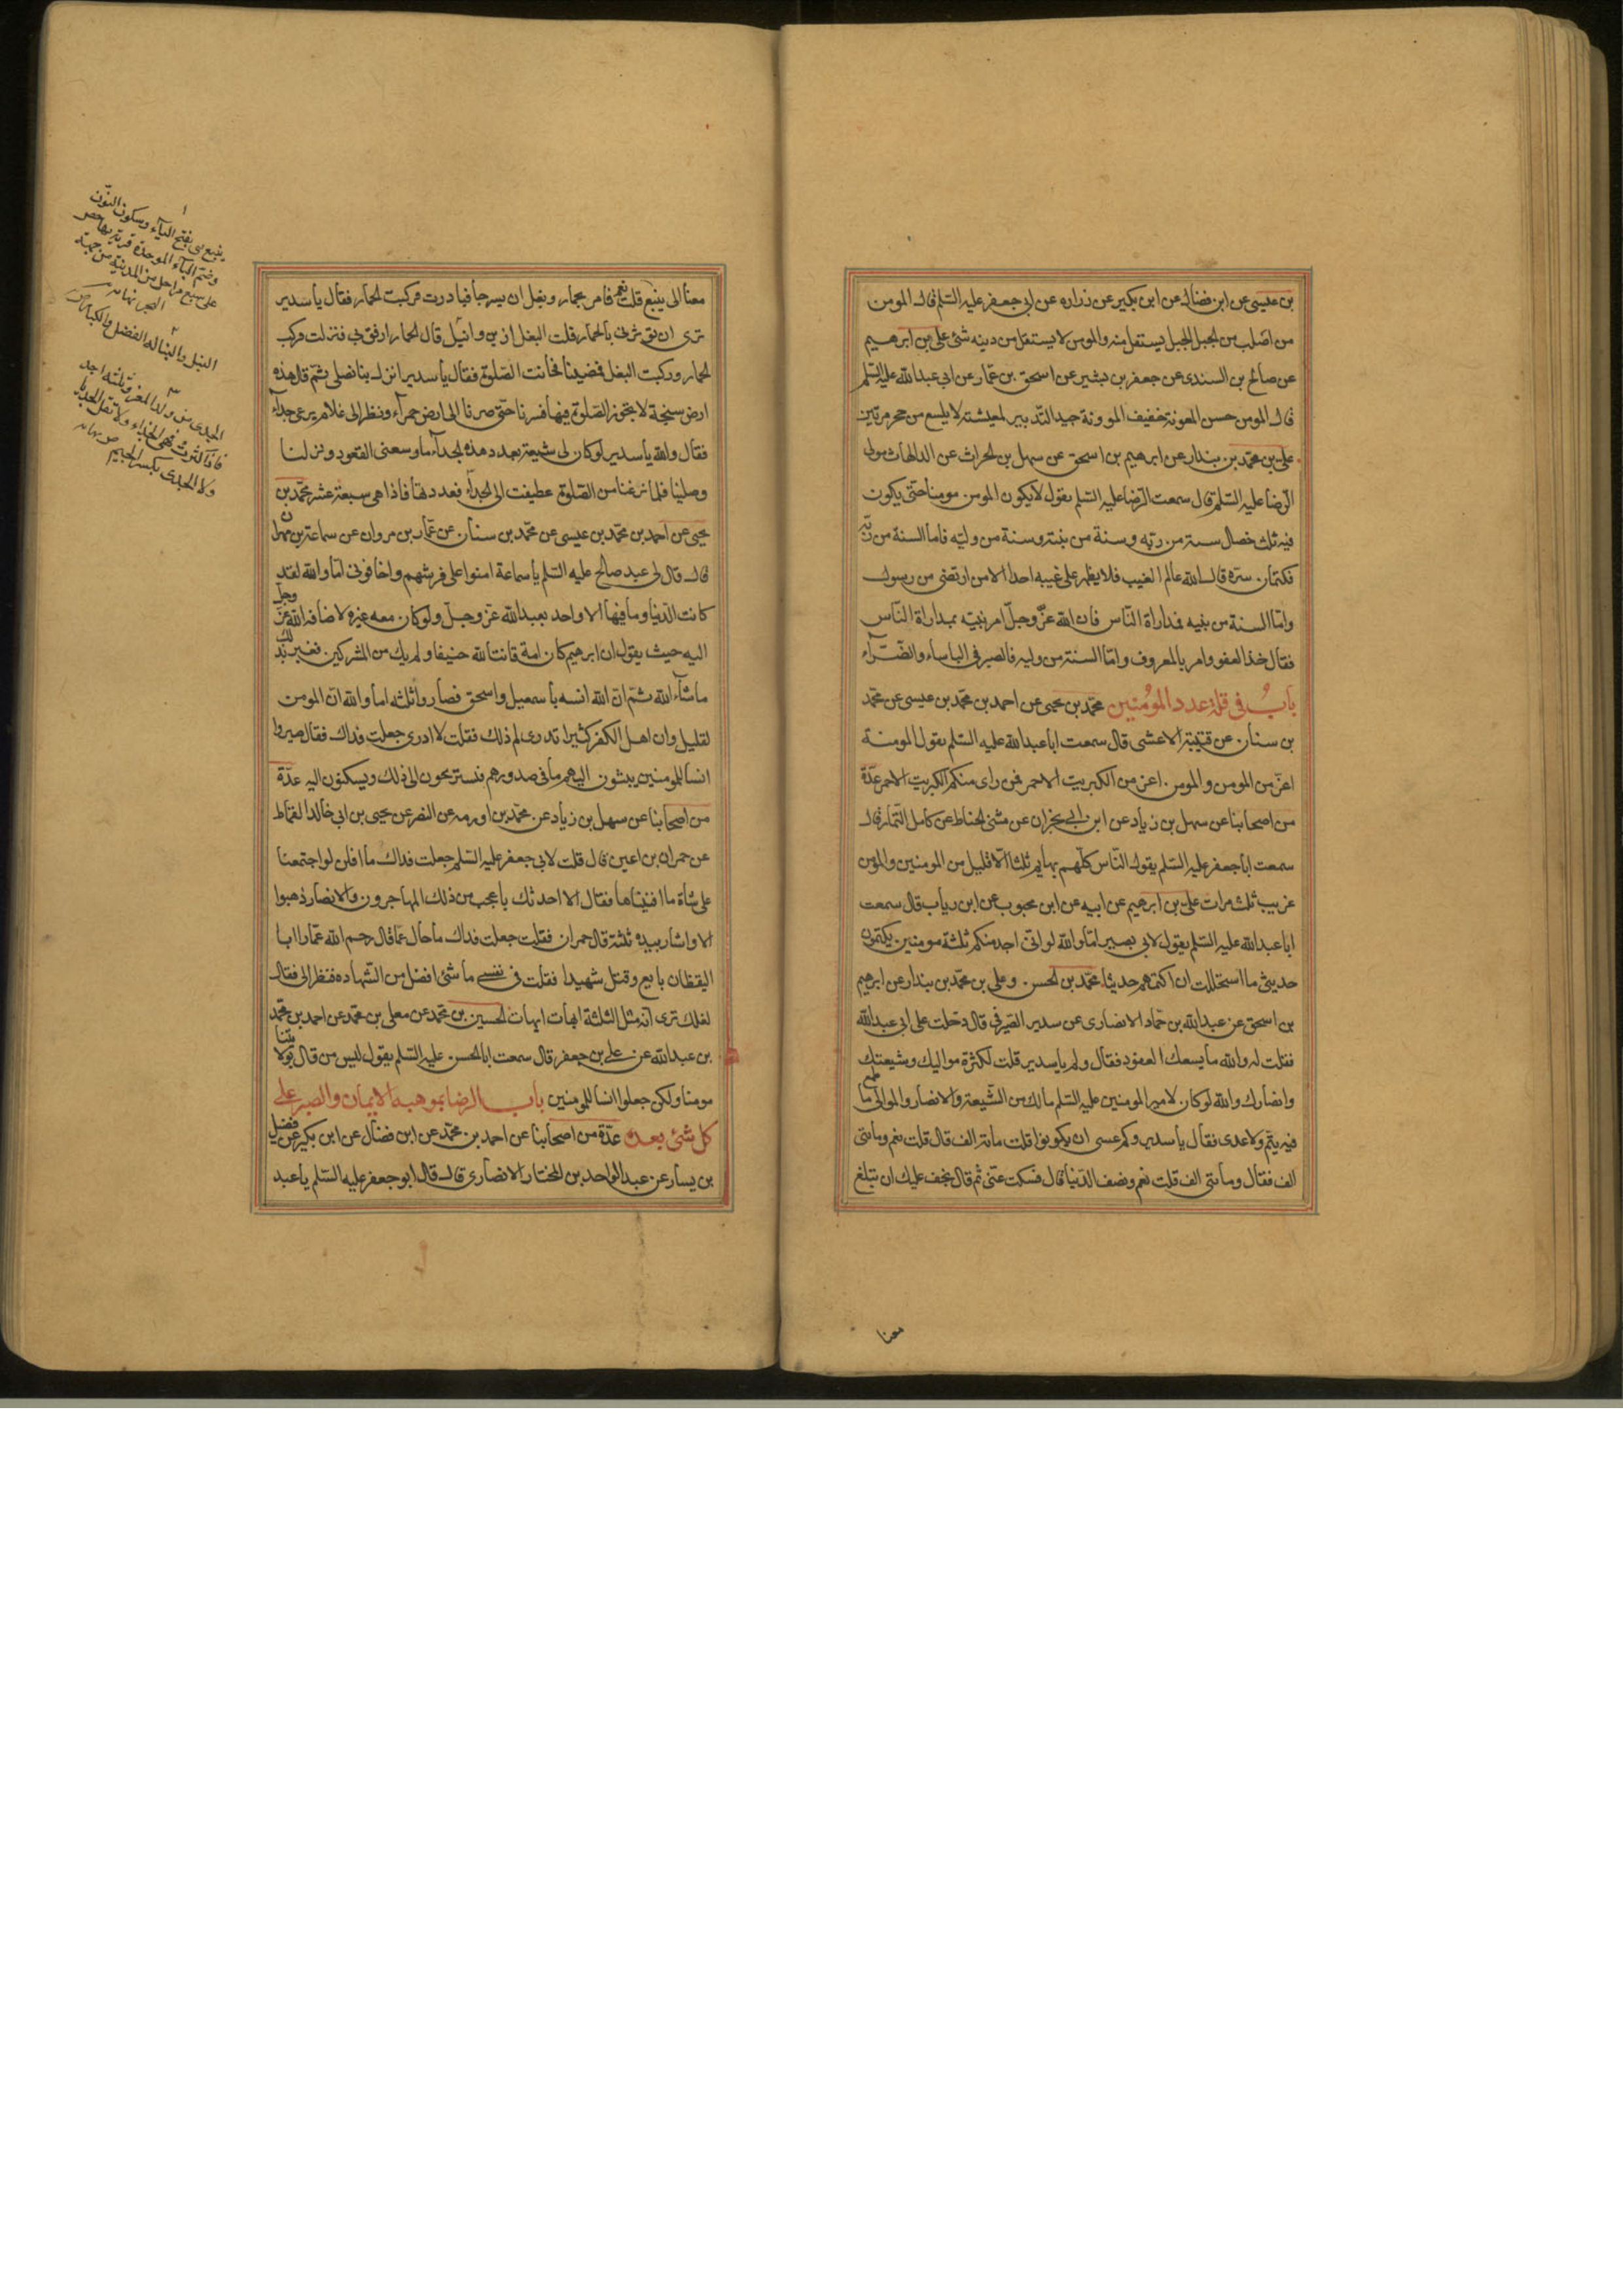 بن عيسى عن ابن فضال عن ابن بكير عن زراره عن ابى جعفر عليه السّلم قال المومن
من اصلب من الجبل الجبل يستقل منه والمومن لا يستقل من دينه شئ على بن ابرهيم
عن صالح بن السندى عن جعفر بن بشير عن اسحق بن عمّار عن ابى عبد الله عليه السّلم
قال المومن حسن المعونة خفيف الموونة جيد التدبير لمعيشته لا يلسع من جحر مرتين
على بن محمّد بن بندار عن ابرهيم بن اسحق عن سهل بن الحراث عن الدلهاث مولى
الرّضا عليه السّلم قال سمعت الرّضا عليه السّلم يقول لا يكون المومن مومنا حتى يكون
فيه ثلث خصال سنة من ربّه وسنة من نبيّه وسنة من وليّه فاما السنة من ربّه
فكتمان سرّه قال الله عالم الغيب فلا يظهر على غيبه احدا الا من ارتضى من رسول
وامّا السنة من نبيه فمداراة النّاس فان الله عزّ وجلّ امر نبيّه بمداراة النّاس
فقال خذ العفو وامر بالمعروف وامّا السنة من وليه فالصبر فى الباساء والضّرّآء
بابٌ فى قلة عدد المؤمنين محمّد بن يحيى عن احمد بن محمّد بن عيسى عن محمّد
بن سنان عن قتيبة الاعشى قال سمعت ابا عبد الله عليه السّلم يقول المومنة
اعزّ من المومن والمومن اعز من الكبريت الاحمر فمن راى منكم الكبريت الاحمر عدّة
من اصحابنا عن سهل بن زياد عن ابن ابى نجران عن مثنى الحناط عن كامل التمار قال
سمعت ابا جعفر عليه السّلم يقول النّاس كلّهم بهايم ثلثا الّا قليل من المومنين والمومن
غريب ثلث مرات على بن ابرهيم عن ابيه عن ابن محبوب عن ابن رياب قال سمعت
ابا عبد الله عليه السّلم يقول لابى بصير امّا والله لو انى اجد منكم ثلثة مومنين يكتمون
حديثى ما استحللت ان اكتمهم حديثا محمّد بن الحسن وعلى بن محمّد بن بندار عن ابرهيم
بن اسحق عن عبد الله بن حمّاد الانصارى عن سدير الصّيرفى قال دخلت على ابى عبد الله
فقلت له والله ما يسعك القعود فقال ولم يا سدير قلت لكثرة مواليك وشيعتك
وانصارك والله لو كان لامير المومنين عليه السّلم مالك من الشّيعة والانصار والموالى ما طمع
فيه تيم ولا عدى فقال يا سدير وكم عسى ان يكونوا قلت مائة الف قال قلت نعم ومائتى
الف فقال ومائتى الف قلت نعم ونصف الدّنيا قال فسكت عنّى ثم قال يخف عليك ان تبلغ
معنا
معنا الى ينبع قلت نعم فامر بحمار وبغل ان يسرجا فبادرت فركبت الحمار فقال يا سدير
ترى ان تؤثرنى بالحمار قلت البغل ازين وانبل قال الحمار ارفق بى فنزلت فركب
الحمار وركبت البغل فمضينا فحانت الصّلوة فقال يا سدير انزل بنا نصلى ثم قال هذه
ارض سبخة لا يجوز الصّلوة فيها فسرنا حتى صرنا الى ارض حمرآء ونظر الى غلام يرعى جدآء
فقال والله يا سدير لو كان لى شيعة بعدد هذه الجدآء ما وسعنى القعود ونزلنا
وصلينا فلما فرغنا من الصّلوة عطفت الى الجدآء فعددتها فاذا هى سبعة عشر محمّد بن
يحيى عن احمد بن محمّد بن عيسى عن محمّد بن سنان عن عمّار بن مروان عن سماعة بن مهران
قال قال لى عبد صالح عليه السّلم يا سماعة امنوا على فرشهم واخافونى امّا والله لقد
كانت الدّنيا وما فيها الا واحد يعبد الله عزّ وجلّ ولو كان معه غيره لاضافه الله عزّ وجلّ
اليه حيث يقول ان ابرهيم كان امة قانتا لله حنيفا ولم يك من المشركين فغبر بذلك
ما شآء الله ثم انّ الله انسه باسمعيل واسحق فصاروا ثلثه اما والله انّ المومن
لقليل وان اهل الكفر كثير اتدرى لم ذلك فقلت لا ادرى جعلت فداك فقال صيروا
انسا للمومنين يبثون اليهم ما فى صدورهم فيستريحون الى ذلك ويسكنون اليه عدّة
من اصحابنا عن سهل بن زياد عن محمّد بن اورمه عن النضر عن يحيى بن ابى خالد القماط
عن حمران بن اعين قال قلت لابى جعفر عليه السّلم جعلت فداك ما اقلنا لو اجتمعنا
على شاة ما افنيناها فقال الا احدثك باعجب من ذلك المهاجرون والانصار ذهبوا
الا واشار بيده ثلثة قال حمران فقلت جعلت فداك ما حال عمّار قال رحم الله عمّارا ابا
اليقظان بايع وقتل شهيدا فقلت فى نفسى ما شئ افضل من الشّهاده فنظر الى فقال
لعلك ترى انّه مثل الثلثة ايهات ايهات الحسين بن محمّد عن معلى بن محمّد عن احمد بن محمّد
بن عبد الله عن على بن جعفر قال سمعت ابا الحسن عليه السّلم يقول ليس من قال بولايتنا
مومنا ولكن جعلوا انسا للمومنين باب الرضا بموهبه الايمان والصبر على
كل شئ بعده عدّة من اصحابنا عن احمد بن محمّد عن ابن فضال عن ابن بكير عن فضيل
بن يسار عن عبد الواحد بن المختار الانصارى قال قال ابو جعفر عليه السّلم يا عبد
ينبع بفتح اليآء وسكون النّون
وضم البآء الموحدة قرية بها حصن
على سبع مراحل من المدينة من جهة
البحر نهايه
النبل والنباله الفضل
الجدى من ولد المعز وثلثة اجد
فاذا كثرت فهى الجداء ولا تقل الجدايا
ولا الجدى بكسر الجيم